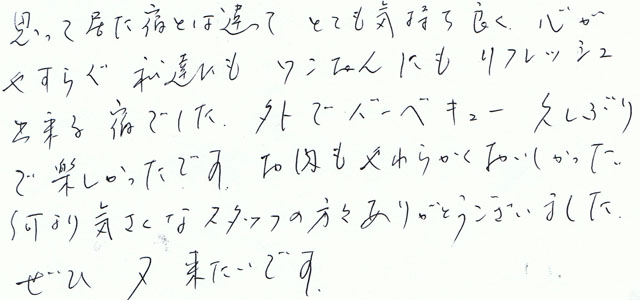 思って居た宿とは違って とても気持ち良く、心が
やすらぐ 私達にも ワンちゃんにも リフレッシュ
出来る 宿でした。外でバーベキュー 久しぶり
で楽しかったです。お肉もやわらかくおいしかった。
何より気さくなスタッフの方々ありがとうございました。
ぜひ 又 来たいです。